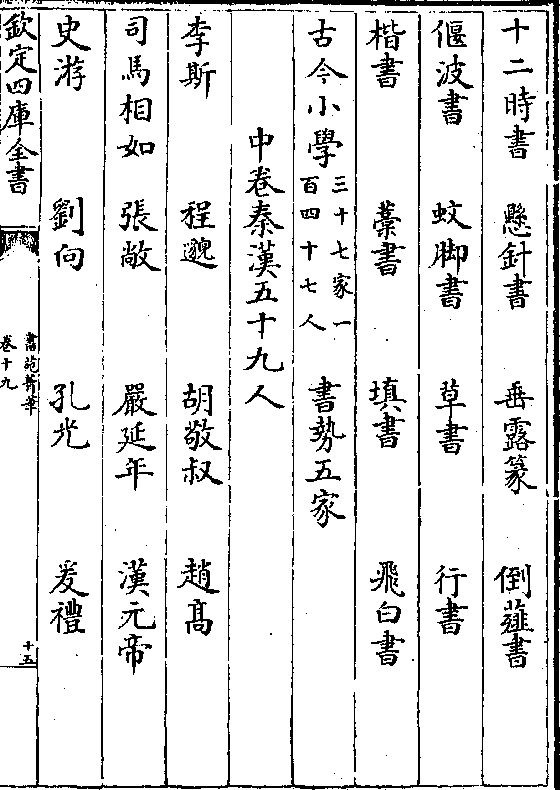 十二時書 懸針書 垂露篆 倒薤書
偃波書 蚊脚書 草書 行書
楷書 藁書 填書 飛白書
古今小學三十七家一百四十七人 書勢五家
中卷秦漢五十九人
李斯 程邈 胡敬叔 趙高
司馬相如 張敞 嚴延年 漢元帝
史游 劉向 孔光 爰禮
欽定四庫全書
書苑菁華
卷十九
十五